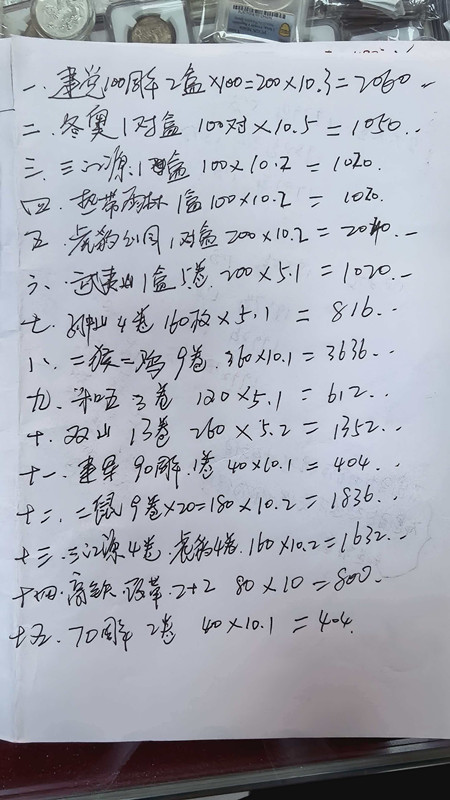 一. 建党100周年 2盒×100=200×10.3=2060
二. 冬奥1对盒 100对×10.5=1050..
三. 三江源.1盒 100×10.2=1020.
四. 热带雨林1盒 100×10.2 = 1020.
五. 虎豹公园1对盒 200×10.2=2040.
六. 武夷山1盒5卷. 200×5.1=1020..
七. 4卷 160枚×5.1 = 816..
八. 二猴二鸡9卷. 360×10.1=3636..
九. 和五 3卷 120×5.1=612..
十. 双山 13卷 260×5.2=1352..
十一. 建军90周年.1卷 40×10.1=404..
十二. 二鼠9卷×20=180×10.2=1836..
十三. 三江源4卷. 虎豹4卷. 160×10.2=1632..
十四. 高铁. 2+2 80×10=800.
十五. 70周年 2卷 40×10.1=404.